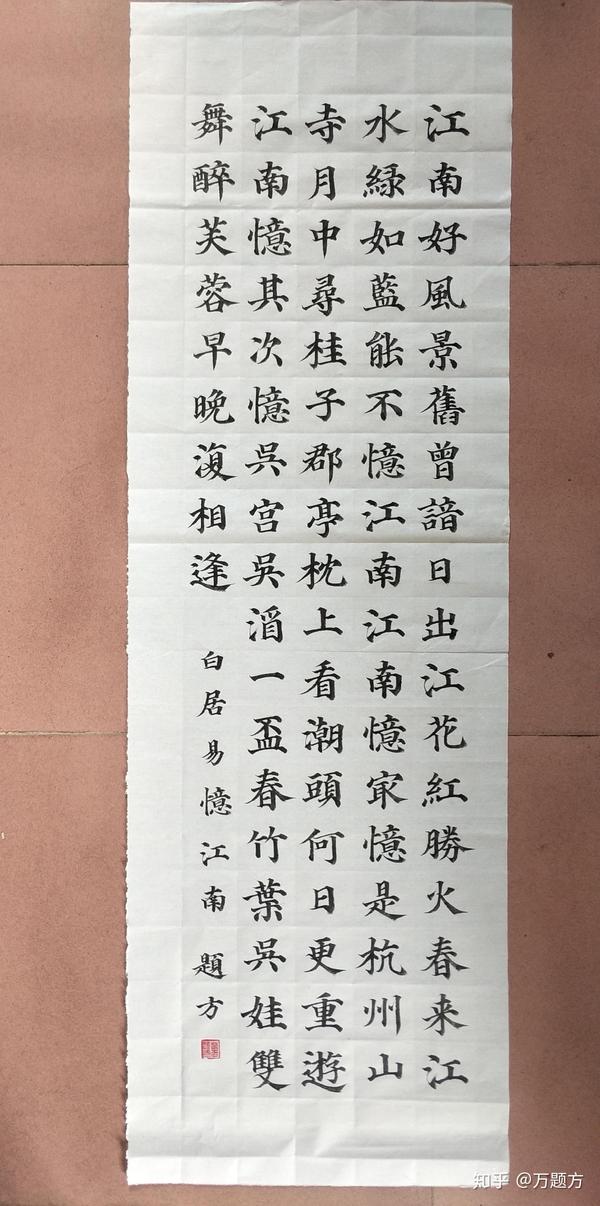 江南好風景舊曾諳日出江花紅勝火春来江
水綠如藍能不憶江南江南憶冣憶是杭州山
寺月中尋桂子郡亭枕上看潮頭何日更重遊
江南憶其次憶吳宮吳酒一盃春竹葉吳娃雙
舞醉芙蓉早晚復相逢
白居易憶江南 題方
知乎 @万题方